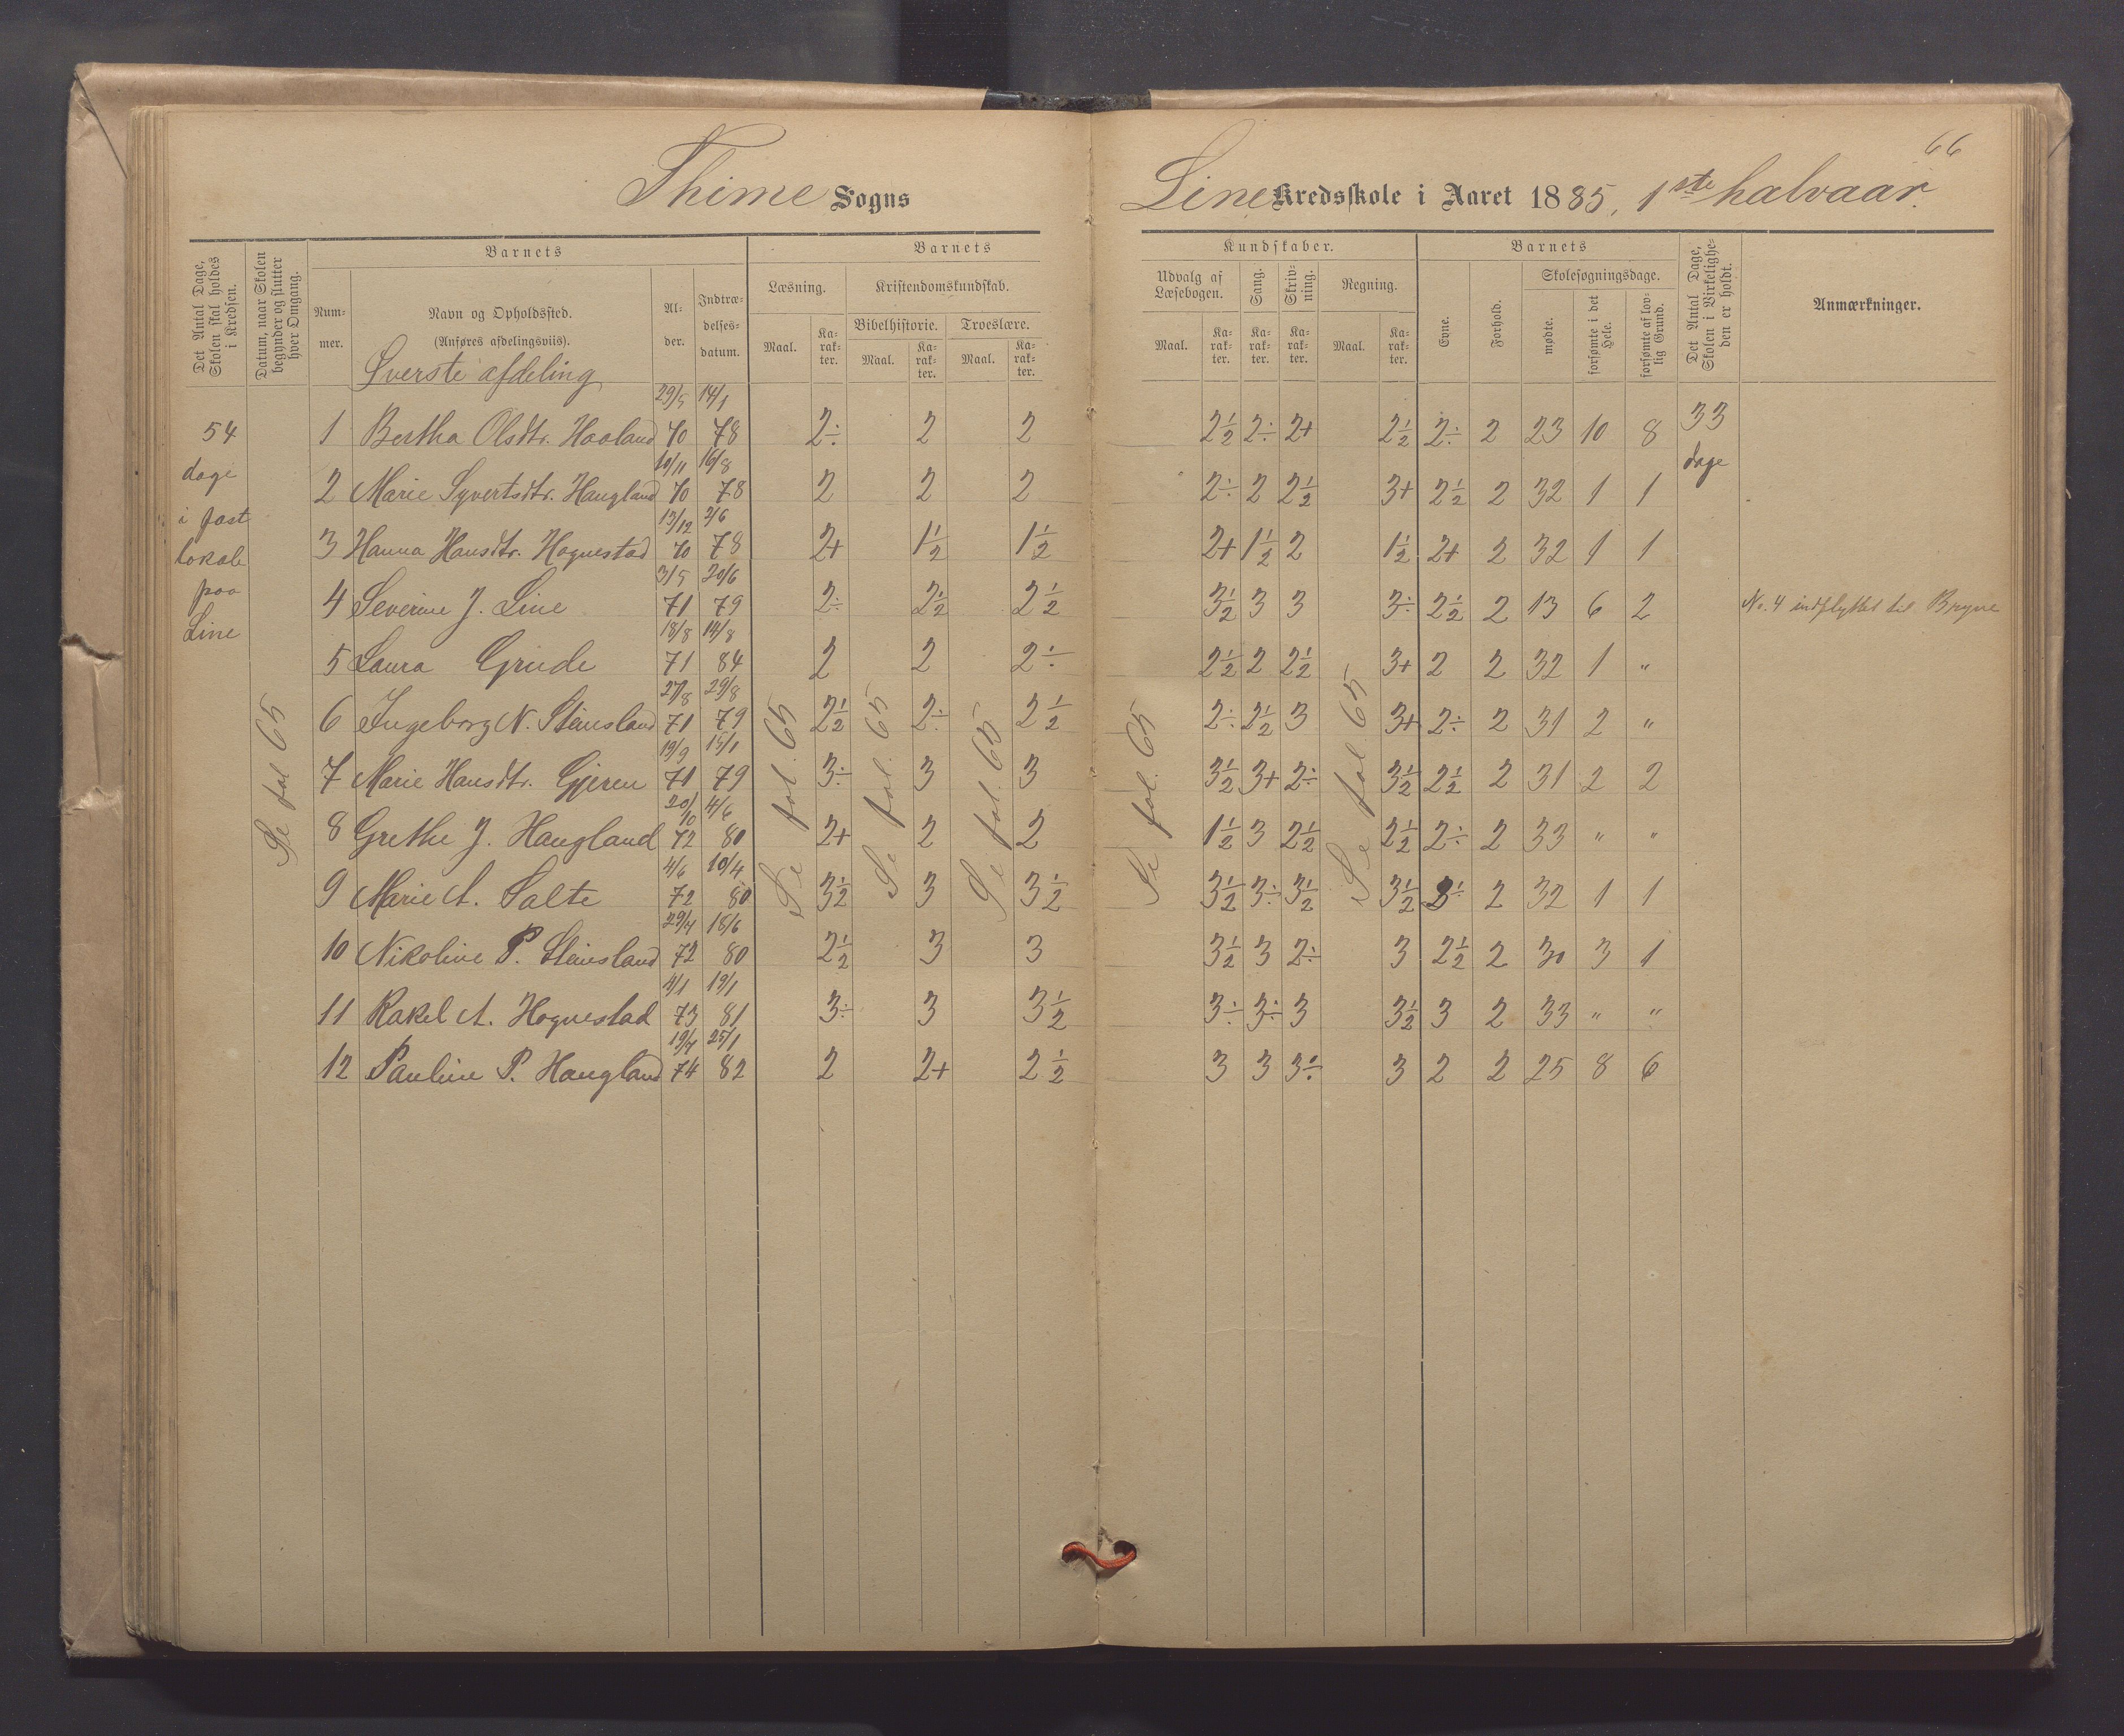 66
Thime Sogns Line Kredsskole i Aaret 1885, 1ste halvaar.
Det Antal Dage, Skolen skal holdes i Kredsen.
Datum, naar Skolen begynder og slutter hver Omgang.
Barnets
Num-mer.
Navn og Opholdssted.
(Anføres afdelingsviis).
Al-der.
Indtræ-delses-datum.
Barnets Kundskaber.
Læsning.
Maal. Ka-rak-ter.
Kristendomskundskab.
Bibelhistorie. Troeslære.
Maal. Ka-rak-ter. Maal. Ka-rak-ter.
Udvalg af Læsebogen.
Maal. Ka-rak-ter.
Sang. Ka-rak-ter.
Skriv-ning. Ka-rak-ter.
Regning.
Maal. Ka-rak-ter.
Barnets
Evne. Forhold.
Skolesøgningsdage.
mødte. forsømte i det Hele. forsømte af lov-lig Grund.
Det Antal Dage, Skolen i Virkelighe-den er holdt.
Anmærkninger.
Øverste afdeling
54 dage i fast lokale paa Line
Se fol 65
Se fol. 65
Se fol. 65
Se fol. 65
Se fol. 65
Se fol 65
33 dage
1 Bertha Olsdtr. Haaland 29/5 70 14/1 78 2÷ 2 2 2½ 2÷ 2+ 2½ 2÷ 2 23 10 8
2 Marie Syvertsdtr. Haugland 10/11 70 16/8 78 2 2 2 2÷ 2 2½ 3+ 2½ 2 32 1 1
3 Hanna Hansdtr. Hognestad 13/12 70 2/6 78 2+ 1½ 1½ 2+ 1½ 2 1½ 2+ 2 32 1 1
4 Severine J. Line 3/5 71 20/6 79 2÷ 2½ 2½ 3½ 3 3 3÷ 2½ 2 13 6 2 No. 4 indflyttet til Bryne
5 Laura Grude 18/8 71 14/8 84 2 2 2÷ 2½ 2 2½ 3+ 2 2 32 1 "
6 Ingeborg N. Steinsland 27/8 71 29/8 79 2½ 2÷ 2½ 2÷ 2½ 3 3+ 2÷ 2 31 2 "
7 Marie Hansdtr. Gjeren 19/9 71 15/1 79 3÷ 3 3 3½ 3+ 2÷ 3½ 2½ 2 31 2 2
8 Grethe J. Haugland 20/10 72 4/6 80 2+ 2 2 1½ 3 2½ 2½ 2÷ 2 33 " "
9 Marie A. Salte 4/6 72 10/4 80 3½ 3 3½ 3½ 3÷ 3½ 3½ 2 32 1 1
10 Nikoline P. Steinsland 29/4 72 18/6 80 2½ 3 3 3½ 3 2÷ 3 2½ 2 30 3 1
11 Rakel A. Hognestad 4/1 73 19/1 81 3÷ 3 3½ 3÷ 3÷ 3 3½ 3 2 33 " "
12 Pauline P. Haugland 19/4 74 25/1 82 2 2+ 2½ 3 3 3÷ 3 2 2 25 8 6